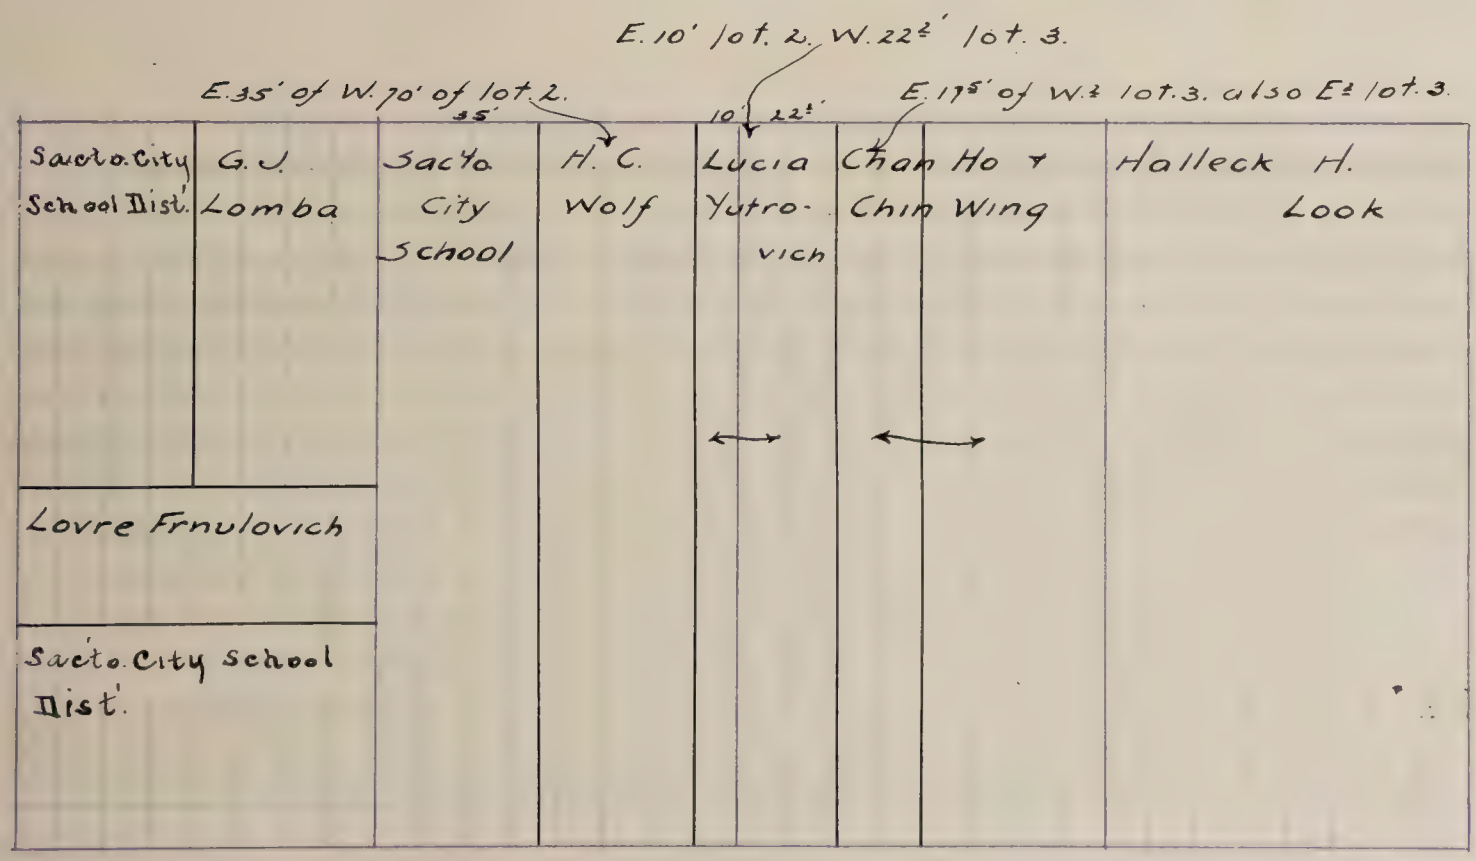 E. 10' lot. 2. W. 22½' lot. 3.
E. 35' of W. 70' of lot. 2.
E. 17⁵' of W. ½ lot. 3. also E½ lot. 3.
35'
10' 22½'
Sacto. City
School Dist.
G. J.
Lomba
Sacto.
City
School
H. C.
Wolf
Lucia
Yutro-
vich
Chan Ho &
Chin Wing
Halleck H.
Look
Lovre Frnulovich
Sacto. City School
Dist.